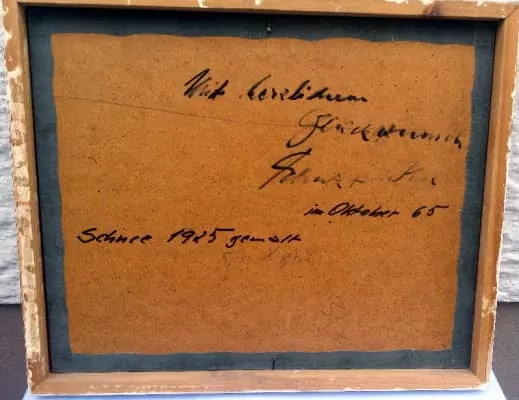 Mit herzlichem
Glückwunsch
im Oktober 65
Schnee 1925 gemalt